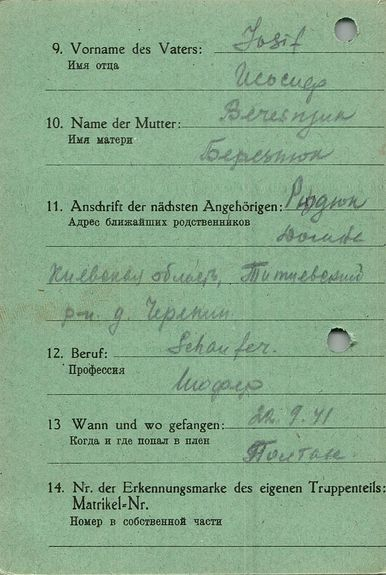 9. Vorname des Vaters: Josif
Имя отца
10. Name der Mutter:
Имя матери
11. Anschrift der nächsten Angehörigen:
Адрес ближайших родственников
Киевская область,
р-н. д. Черепин
12. Beruf: Schaufer.
Профессия
Шофер
13 Wann und wo gefangen: 22.9.41
Когда и где попал в плен
14. Nr. der Erkennungsmarke des eigenen Truppenteils:
Matrikel=Nr.
Номер в собственной части